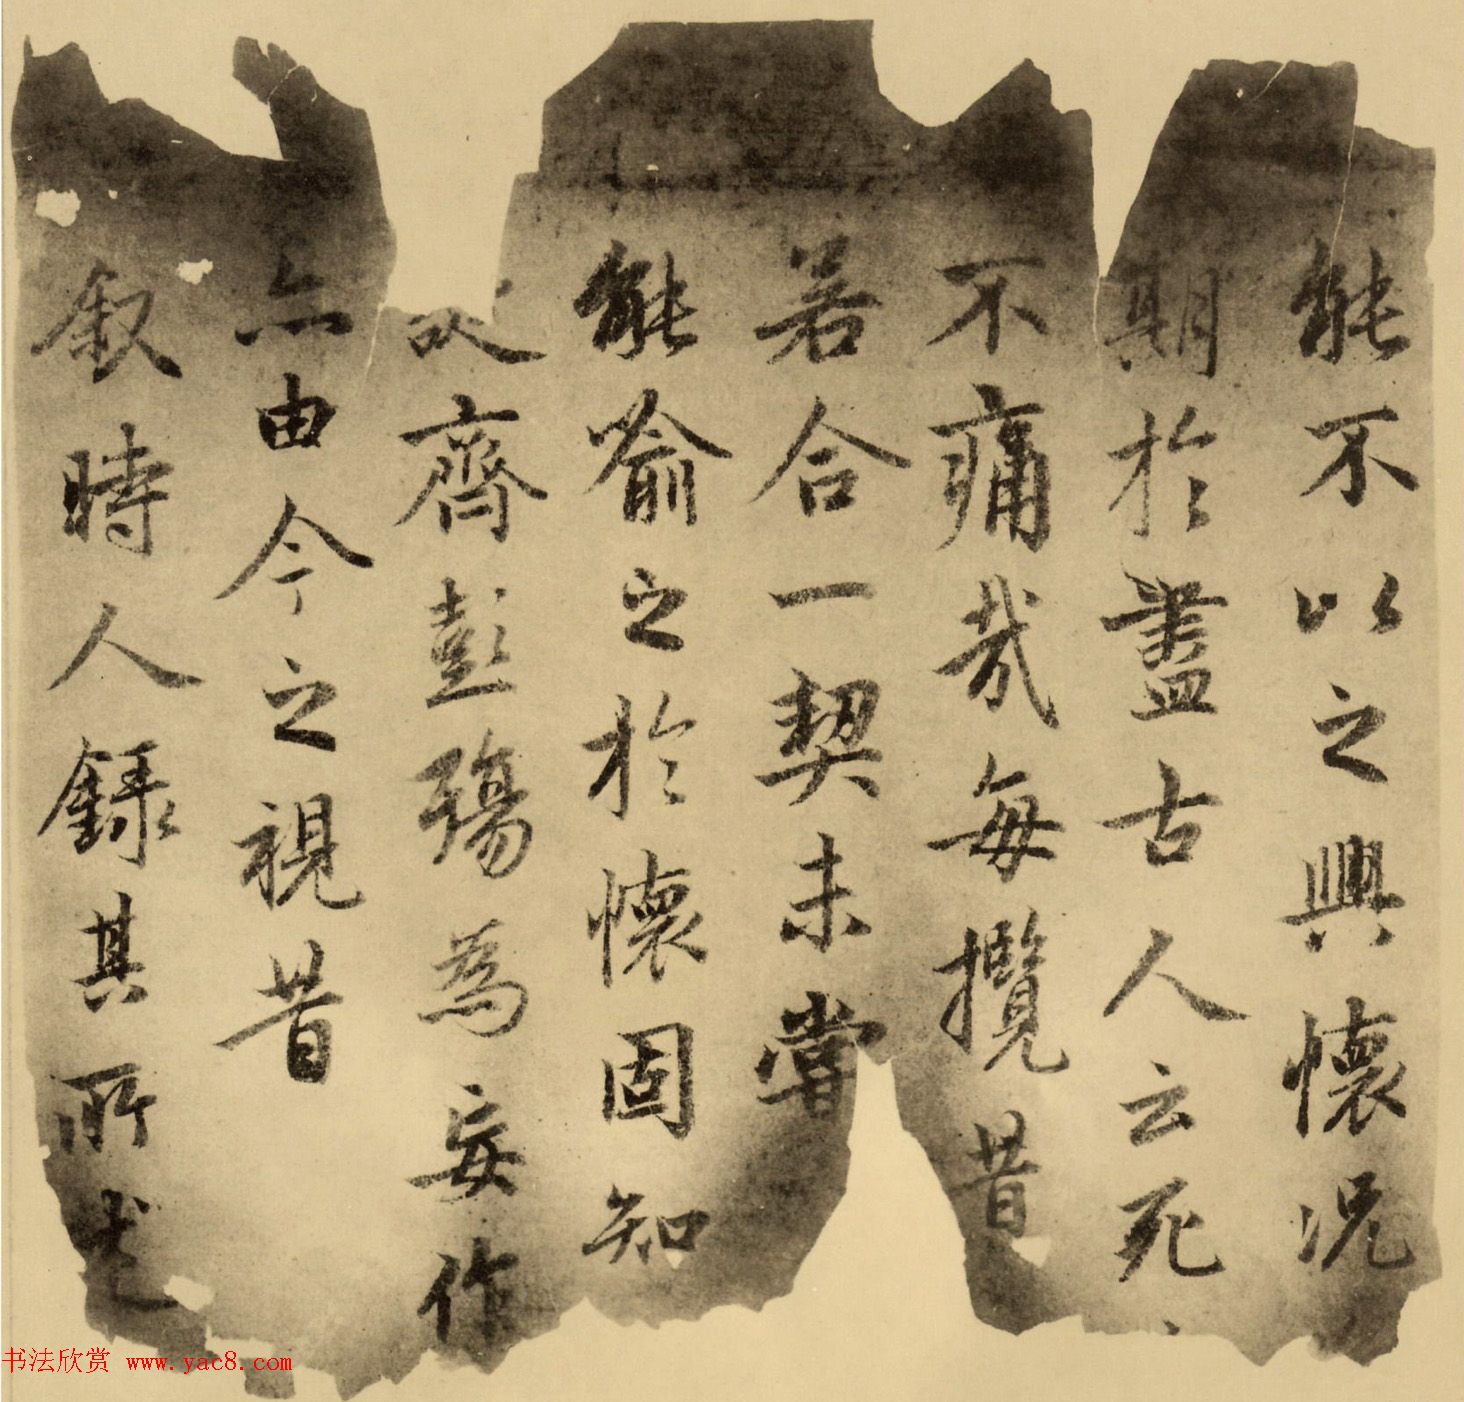 能不以之興懷況
期於盡古人云死
不痛哉每攬昔
若合一契未嘗
能喻之於懷固知
齊彭殤為妄作
亦由今之視昔
叙時人錄其所述
书法欣赏 www.yac8.com